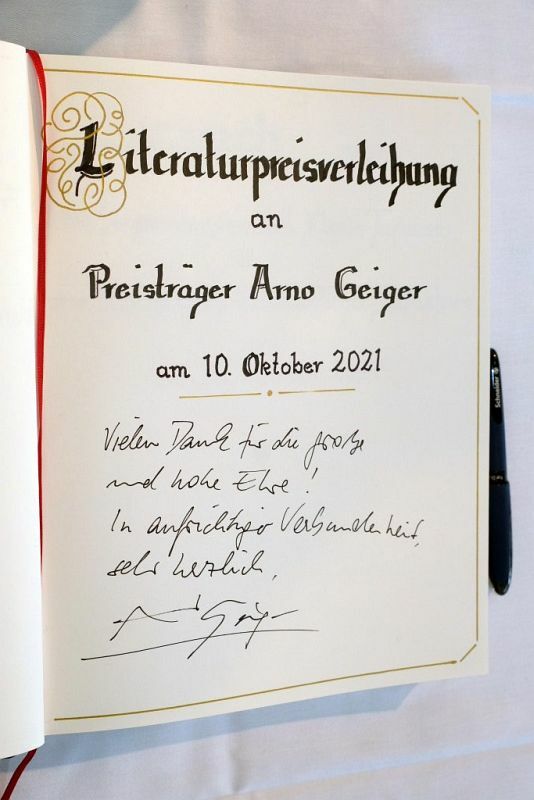 Literaturpreisverleihung
an
Preisträger Arno Geiger
am 10. Oktober 2021
Vielen Dank für die große
und hohe Ehre!
In aufrichtiger Verbundenheit,
sehr herzlich,
Arno Geiger
Schneider